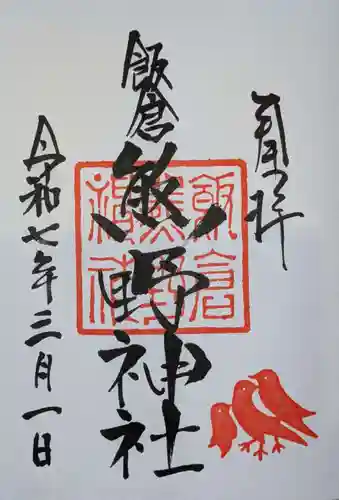 奉拝
飯倉
熊野神社
飯倉
熊野
神社
令和七年三月一日